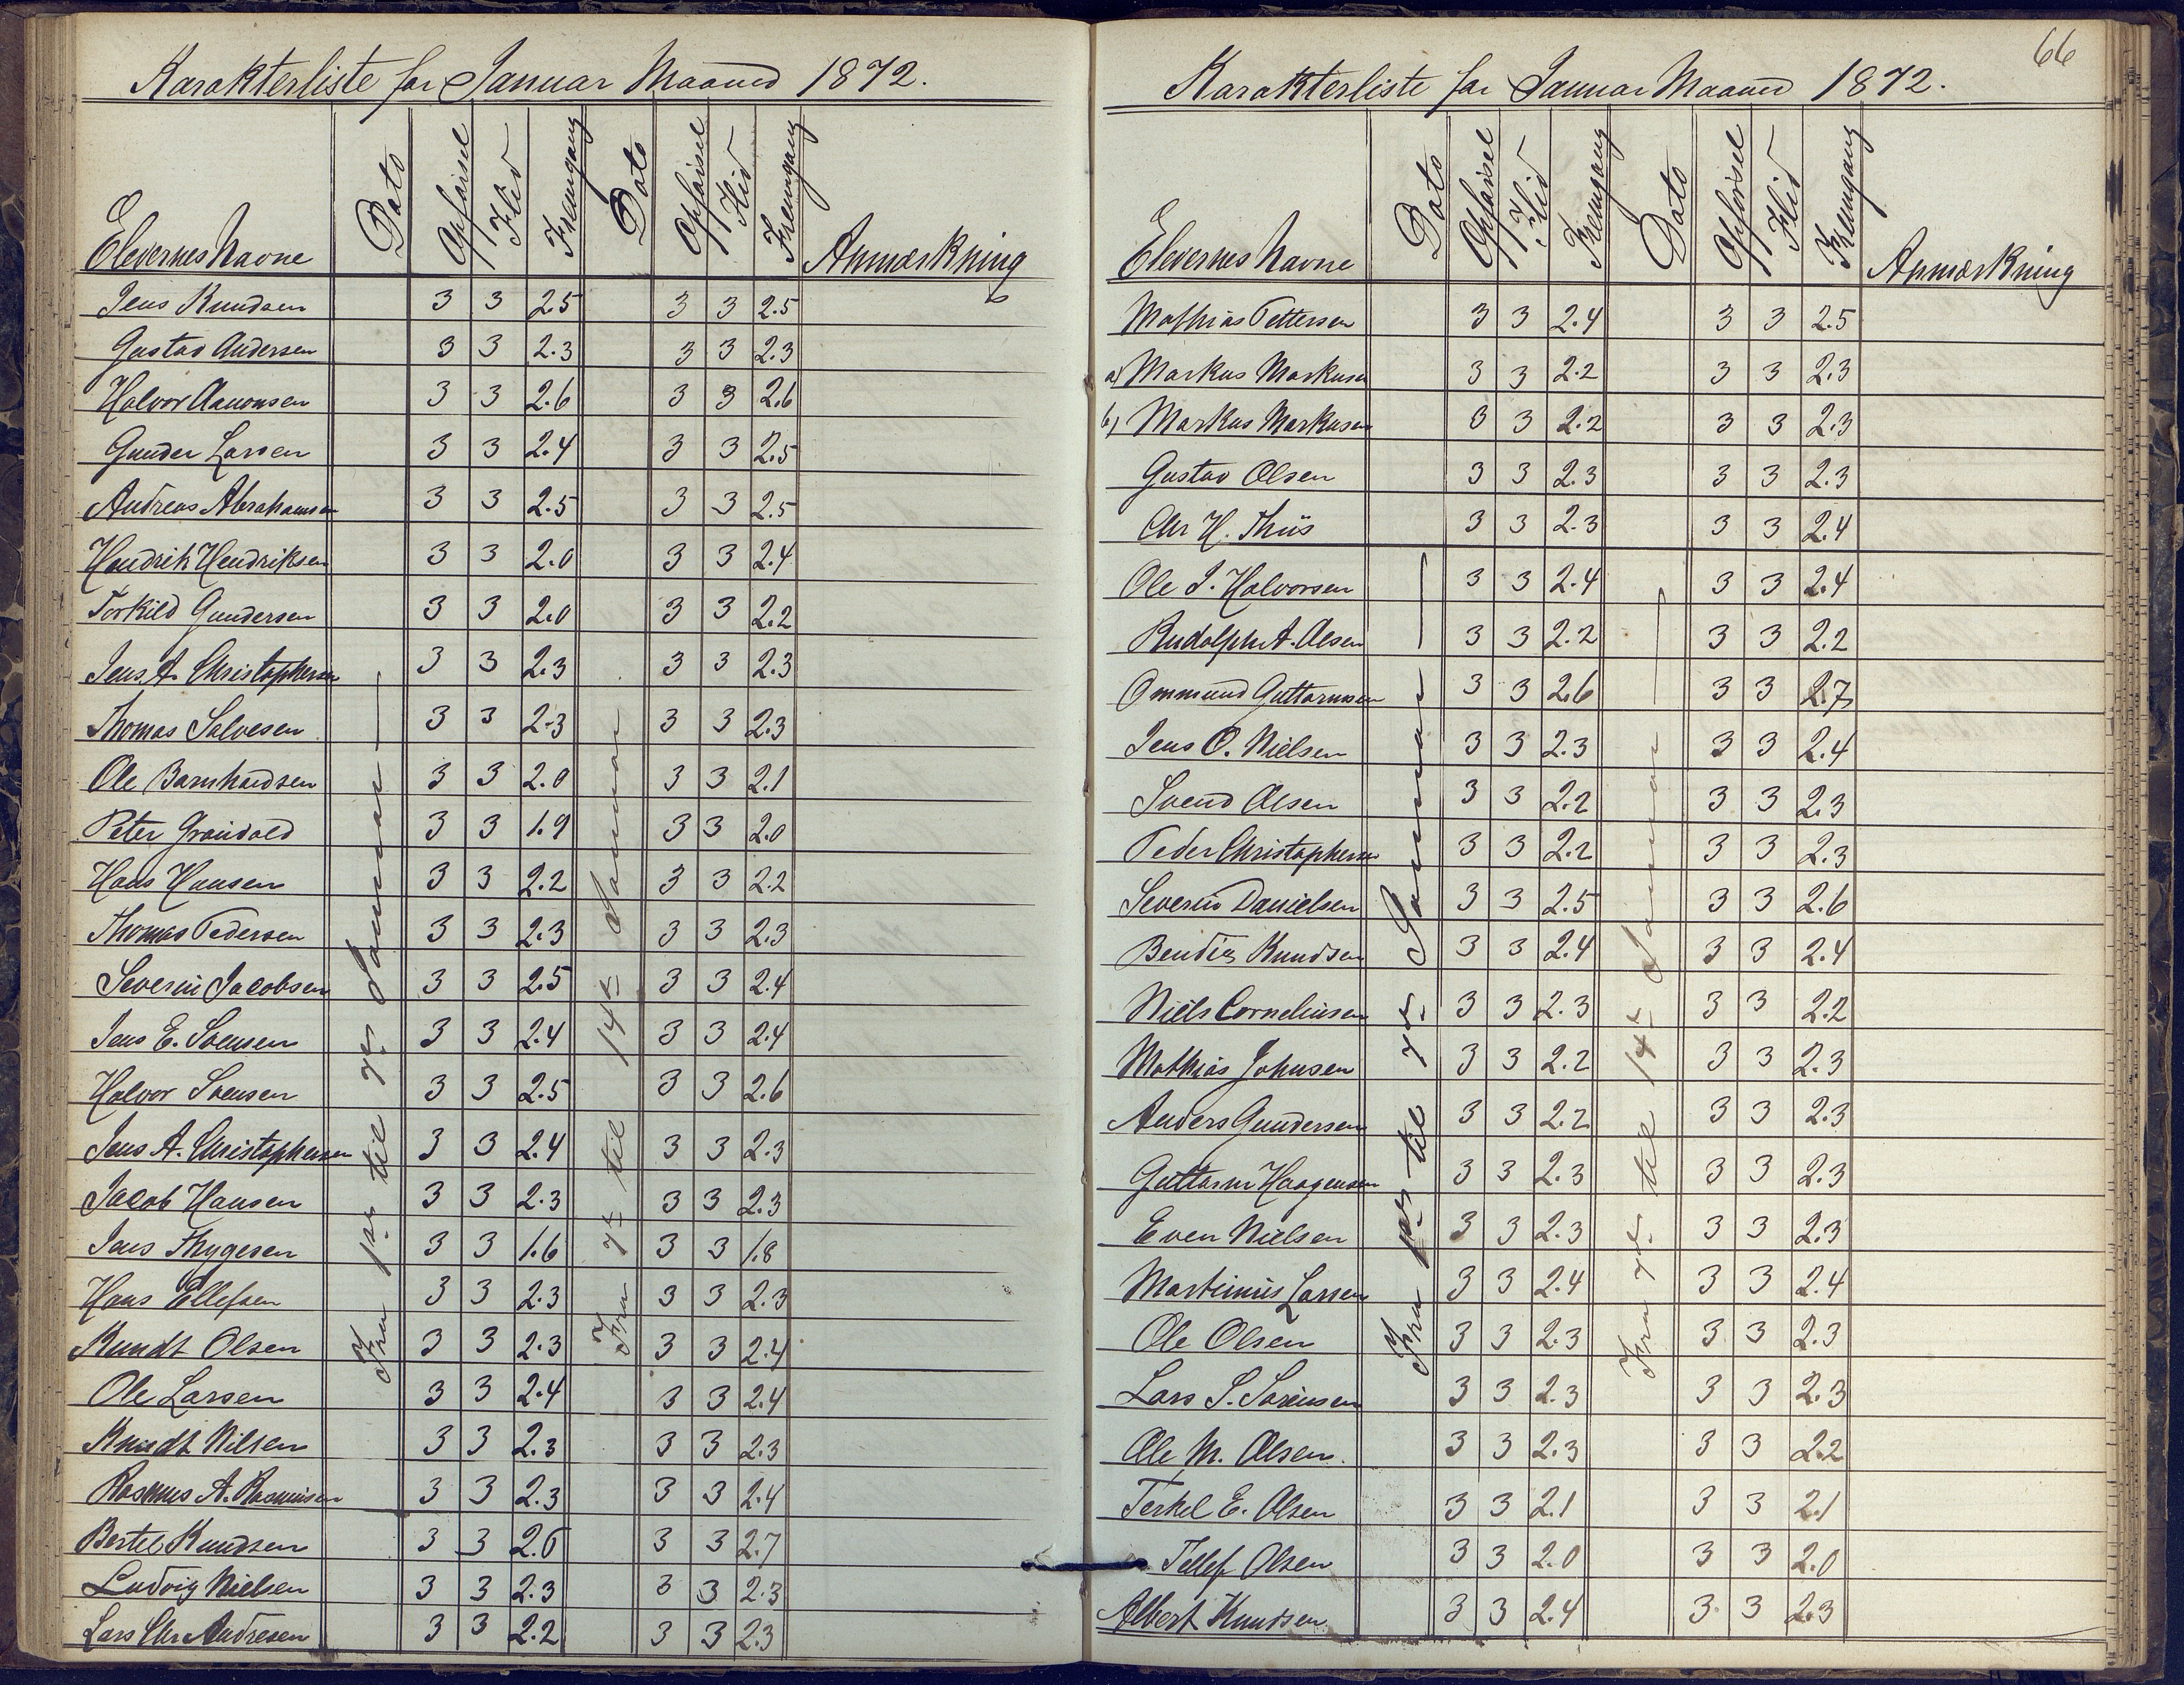 Karakterliste for Januar Maaned 1872.
Elevernes Navne Dato Opførsel Flid Fremgang Dato Opførsel Flid Fremgang Anmærkning
Fra 1ste til 7de Januar
Fra 7de til 14de Januar
Jens Knudsen 3 3 2.5 3 3 2.5
Gustav Andersen 3 3 2.3 3 3 2.3
Halvor Aanonsen 3 3 2.6 3 3 2.6
Gunder Larsen 3 3 2.4 3 3 2.5
Andreas Abrahamsen 3 3 2.5 3 3 2.5
Hendrik Hendriksen 3 3 2.0 3 3 2.4
Torkild Gundersen 3 3 2.0 3 3 2.2
Jens A. Christophersen 3 3 2.3 3 3 2.3
Thomas Salvesen 3 3 2.3 3 3 2.3
Ole Barnhardsen 3 3 2.0 3 3 2.1
Peter Grønvold 3 3 1.9 3 3 2.0
Hans Hansen 3 3 2.2 3 3 2.2
Thomas Pedersen 3 3 2.3 3 3 2.3
Severin Jacobsen 3 3 2.5 3 3 2.4
Jens E. Svensen 3 3 2.4 3 3 2.4
Halvor Svensen 3 3 2.5 3 3 2.6
Jens A. Christophersen 3 3 2.4 3 3 2.3
Jacob Hansen 3 3 2.3 3 3 2.3
Jens Thygesen 3 3 1.6 3 3 1.8
Hans Ellefsen 3 3 2.3 3 3 2.3
Kundt Olsen 3 3 2.3 3 3 2.4
Ole Larsen 3 3 2.4 3 3 2.4
Knudt Nilsen 3 3 2.3 3 3 2.3
Rasmus A. Rasmusen 3 3 2.3 3 3 2.4
Bertel Knudsen 3 3 2.6 3 3 2.7
Ludvig Nielsen 3 3 2.3 3 3 2.3
Lars Chr Andresen 3 3 2.2 3 3 2.3
66
Karakterliste for Januar Maaned 1872.
Elevernes Navne Dato Opførsel Flid Fremgang Dato Opførsel Flid Fremgang Anmærkning
Fra 1ste til 7de Januar
Fra 7de til 14de Januar
Mathias Pettersen 3 3 2.4 3 3 2.5
a) Markus Markusen 3 3 2.2 3 3 2.3
b) Markus Markusen 3 3 2.2 3 3 2.3
Gustav Olsen 3 3 2.3 3 3 2.3
Chr H. Thiis 3 3 2.3 3 3 2.4
Ole J. Halvorsen 3 3 2.4 3 3 2.4
Rudolph A. Olsen 3 3 2.2 3 3 2.2
Ommund Guttormsen 3 3 2.6 3 3 2.7
Jens O. Nielsen 3 3 2.3 3 3 2.4
Svend Olsen 3 3 2.2 3 3 2.3
Peder Christophersen 3 3 2.2 3 3 2.3
Severin Danielsen 3 3 2.5 3 3 2.6
Bendix Knudsen 3 3 2.4 3 3 2.4
Niels Corneliusen 3 3 2.3 3 3 2.2
Mathias Johnsen 3 3 2.2 3 3 2.3
Anders Gundersen 3 3 2.2 3 3 2.3
Guttorm Haagensen 3 3 2.3 3 3 2.3
Even Nielsen 3 3 2.3 3 3 2.3
Martinius Larsen 3 3 2.4 3 3 2.4
Ole Olsen 3 3 2.3 3 3 2.3
Lars S. Sørensen 3 3 2.3 3 3 2.3
Ole M. Olsen. 3 3 2.3 3 3 2.2
Terkel E. Olsen 3 3 2.1 3 3 2.1
Tellef Olsen 3 3 2.0 3 3 2.0
Albert Knudsen 3 3 2.4 3 3 2.3